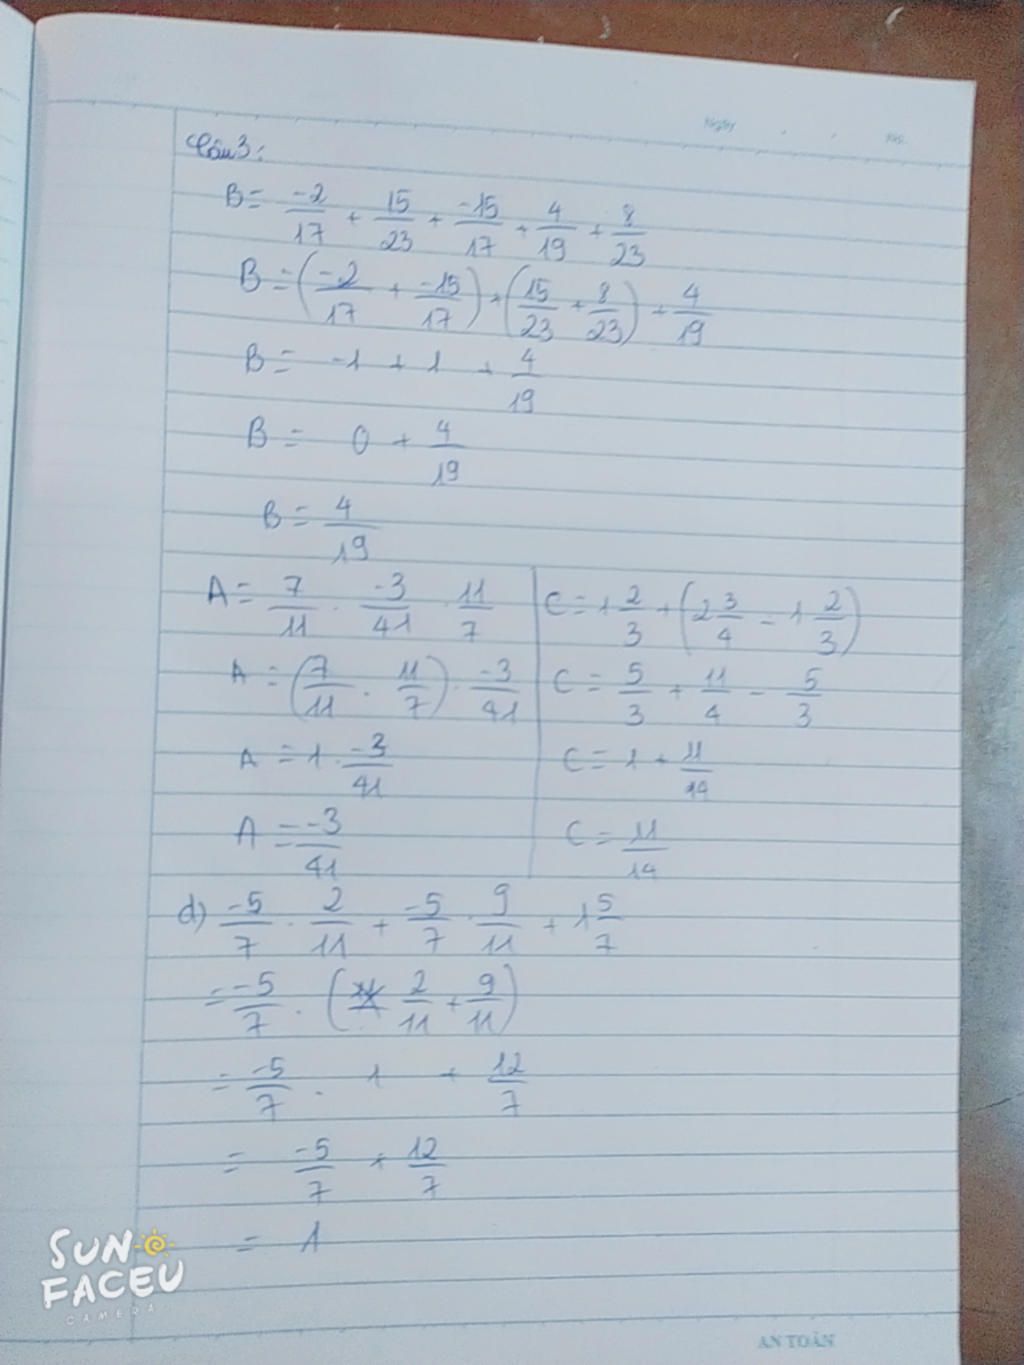 Ngày
Câu 3:
B = -2/17 + 15/23 + -15/17 + 4/19 + 8/23
B = (-2/17 + -15/17) + (15/23 + 8/23) + 4/19
B = -1 + 1 + 4/19
B = 0 + 4/19
B = 4/19
A = 7/11 . -3/41 . 11/7
A = (7/11 . 11/7) . -3/41
A = 1 . -3/41
A = -3/41
C = 1 2/3 + (2 3/4 - 1 2/3)
C = 5/3 + 11/4 - 5/3
C = 1 + 11/14
C = 11/14
d) -5/7 . 2/11 + -5/7 . 9/11 + 1 5/7
= -5/7 . (2/11 + 9/11)
= -5/7 . 1 + 12/7
= -5/7 + 12/7
= 1
SUN
FACEU
CAMERA
AN TOÀN